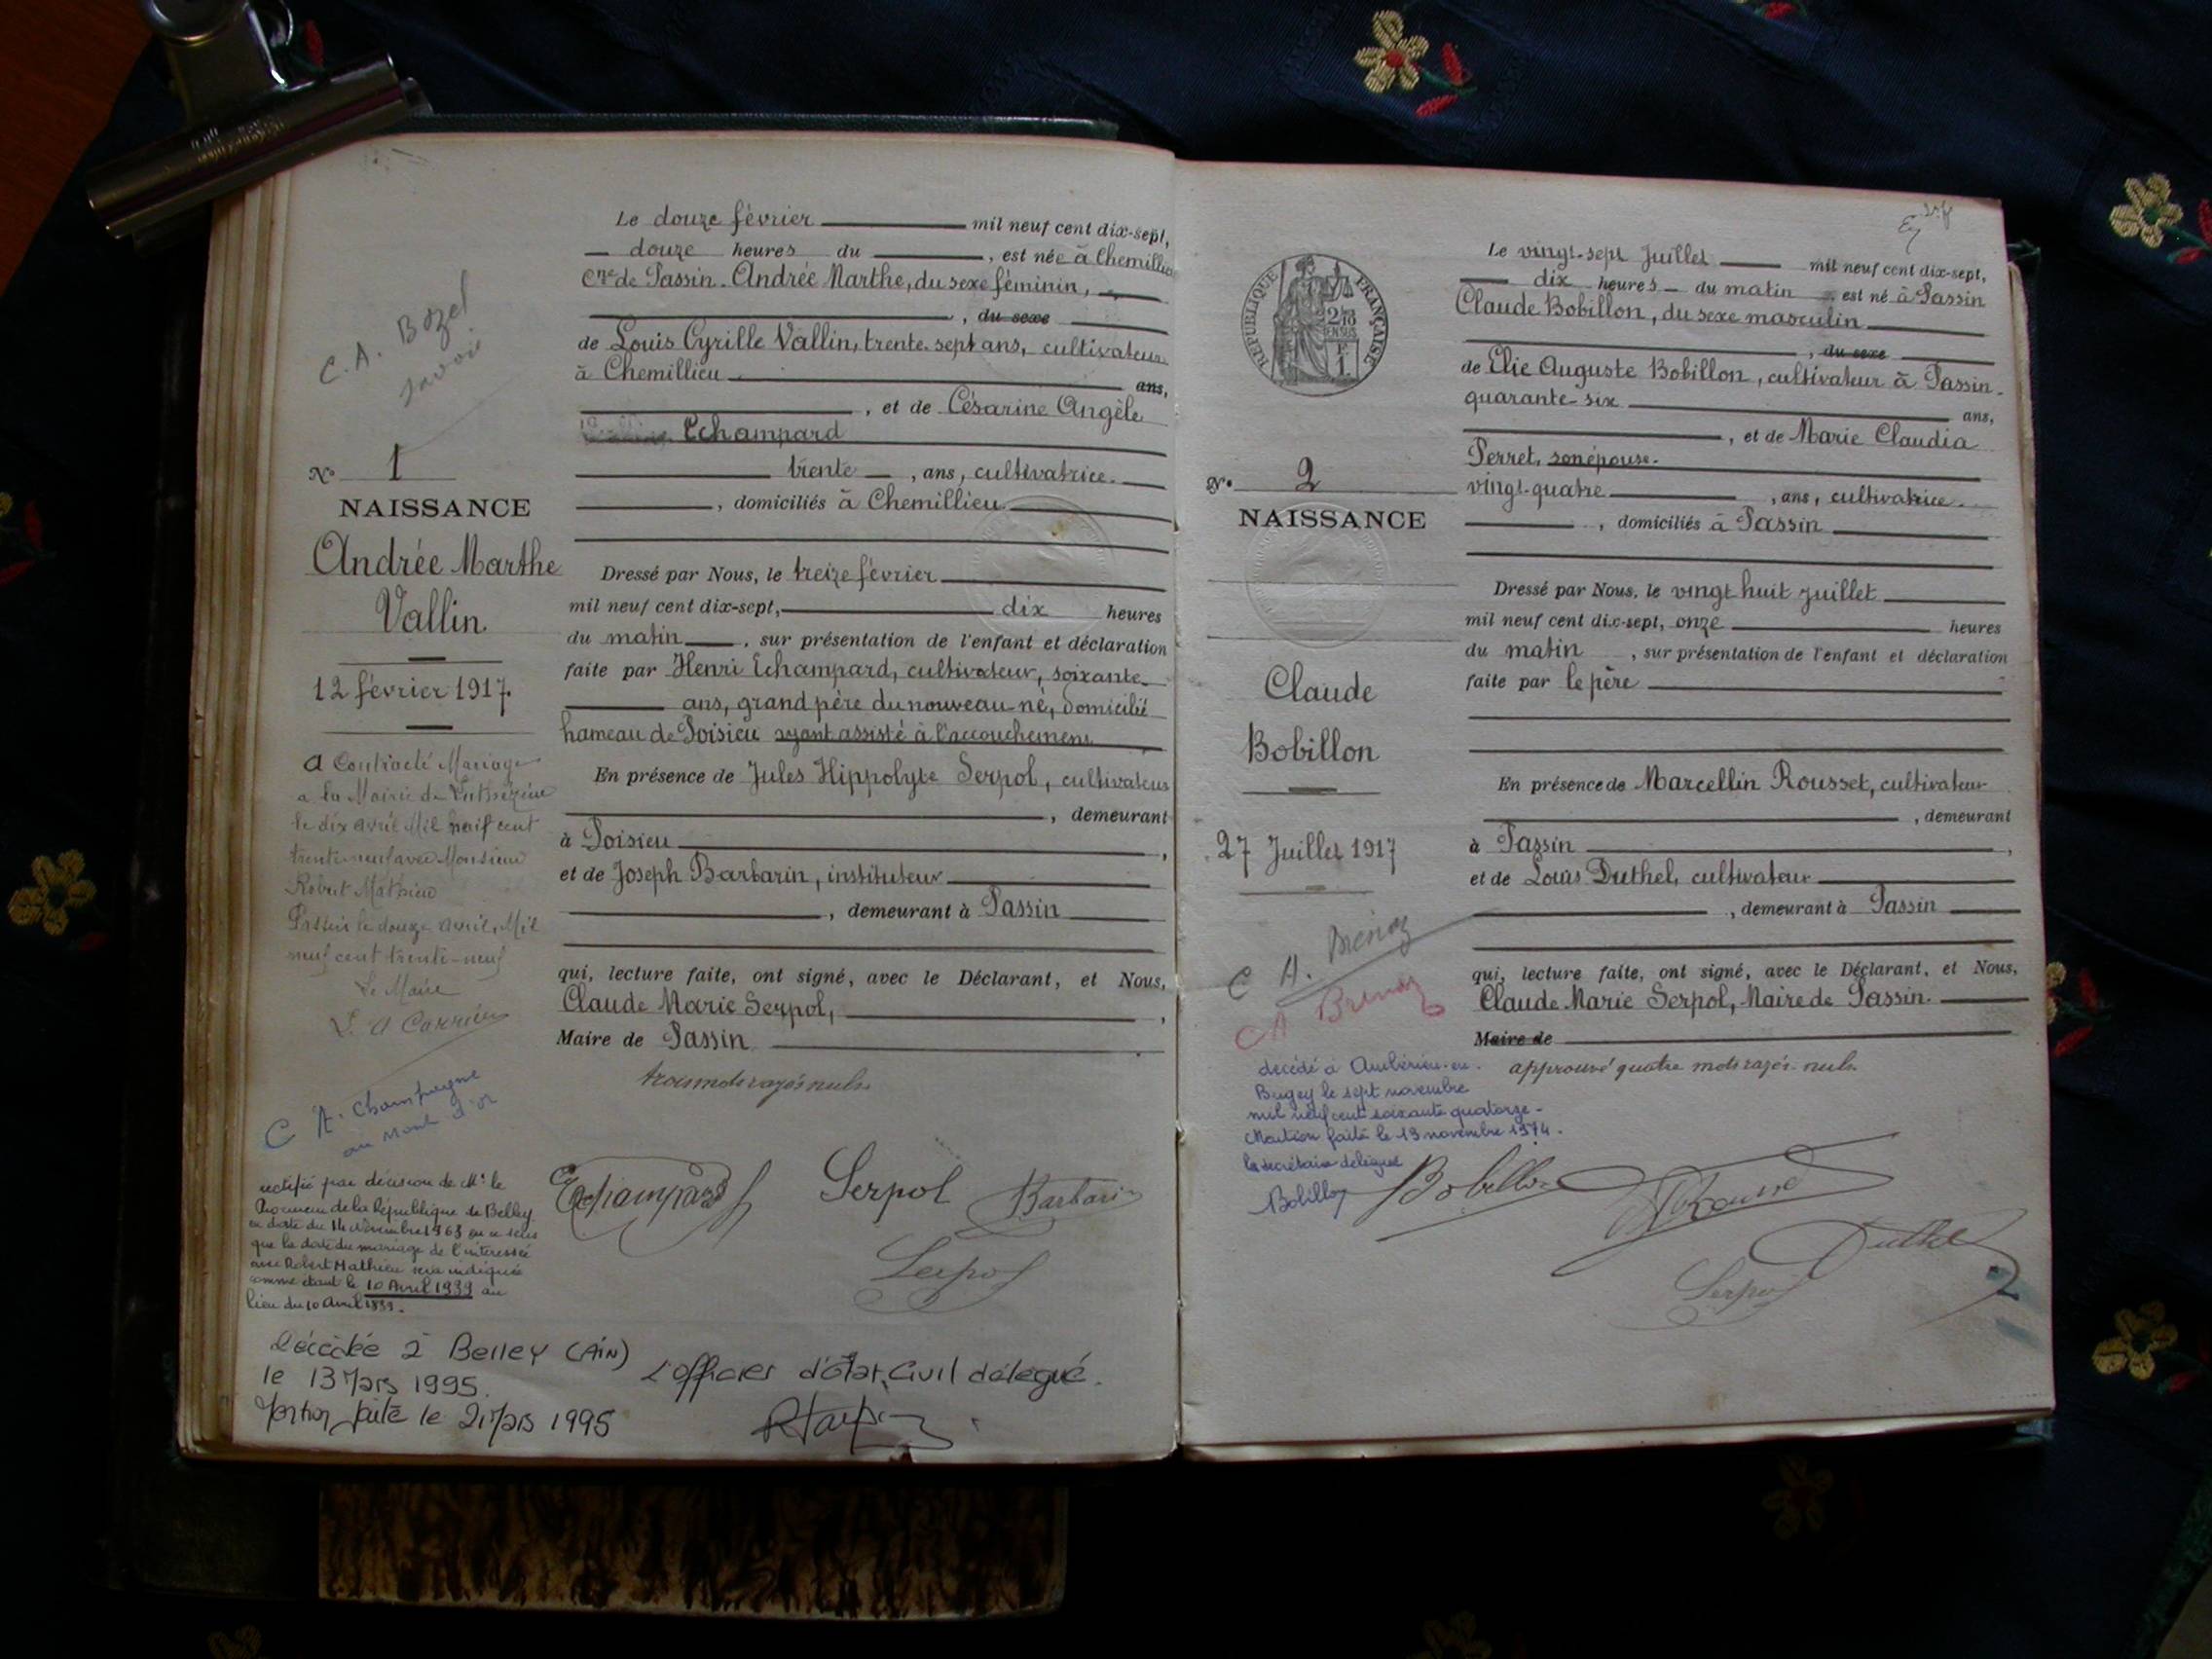 C. A. Bozel
Savoie
N° 1
NAISSANCE
Andrée Marthe
Vallin
12 février 1917.
a Contracté Mariage
a la Mairie de
le dix avril Mil neuf cent
trente-neuf avec Monsieur
Robert Mathieu
Passin le douze avril Mil
neuf cent trente-neuf
Le Maire
C A. Champagne
au Mont d'or
rectifié par décision de Mr le
Procureur de la République de Belley
en date du 14 Novembre 1963 en ce sens
que la date du mariage de l'intéressée
avec Robert Mathieu sera indiquée
comme étant le 10 Avril 1939 au
lieu du 10 Avril 1839.
Le douze février mil neuf cent dix-sept,
douze heures du , est née à Chemillieu
Cne de Passin. Andrée Marthe, du sexe féminin,
, du sexe
de Louis Cyrille Vallin, trente-sept ans, cultivateur
à Chemillieu ans,
, et de Césarine Angèle
Echampard
trente , ans, cultivatrice.
, domiciliés à Chemillieu
Dressé par Nous, le treize février
mil neuf cent dix-sept, dix heures
du matin , sur présentation de l'enfant et déclaration
faite par Henri Echampard, cultivateur, soixante
ans, grand père du nouveau-né, domicilié
hameau de Poisieu ayant assisté à l'accouchement
En présence de Jules Hippolyte Serpol, cultivateur
, demeurant
à Poisieu ,
et de Joseph Barbarin, instituteur
, demeurant à Passin
qui, lecture faite, ont signé, avec le Déclarant, et Nous,
Claude Marie Serpol, ,
Maire de Passin
trois mots rayés nuls
Echampard Serpol Barbarin
Serpol
Décédée à Belley (AiN)
le 13 Mars 1995.
Mention faite le 21 Mars 1995
L'officier d'état Civil délégué.
RÉPUBLIQUE FRANÇAISE
N° 2
NAISSANCE
Claude
Bobillon
27 Juillet 1917
C A. Brénaz
C A Brenaz
décédé à Ambérieu-en-
Bugey le sept novembre
mil neuf cent soixante quatorze-
Mention faite le 13 novembre 1974.
la secrétaire déléguée
Bobillon
Le vingt-sept Juillet mil neuf cent dix-sept,
dix heures du matin est né à Passin
Claude Bobillon, du sexe masculin
, du sexe
de Elie Auguste Bobillon, cultivateur à Passin.
quarante-six ans,
, et de Marie Claudia
Perret, son épouse.
vingt-quatre , ans, cultivatrice.
, domiciliés à Passin
Dressé par Nous, le vingt huit juillet
mil neuf cent dix-sept, onze heures
du matin , sur présentation de l'enfant et déclaration
faite par le père
En présence de Marcellin Rousset, cultivateur
, demeurant
à Passin ,
et de Louis Duthel, cultivateur
, demeurant à Passin
qui, lecture faite, ont signé, avec le Déclarant, et Nous,
Claude Marie Serpol, Maire de Passin.
Maire de
approuvé quatre mots rayés nuls.
Bobillon
Rousset
Duthel
Serpol
2